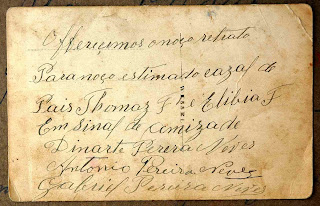 Offereçimos o noço retrato
Para noço estimado cazal de
Pais Thomaz F e Elibia F
Em sinal de amizade
Dinarte Perera Neves
Antonio Pereira Neves
Gabriel Pereira Neves